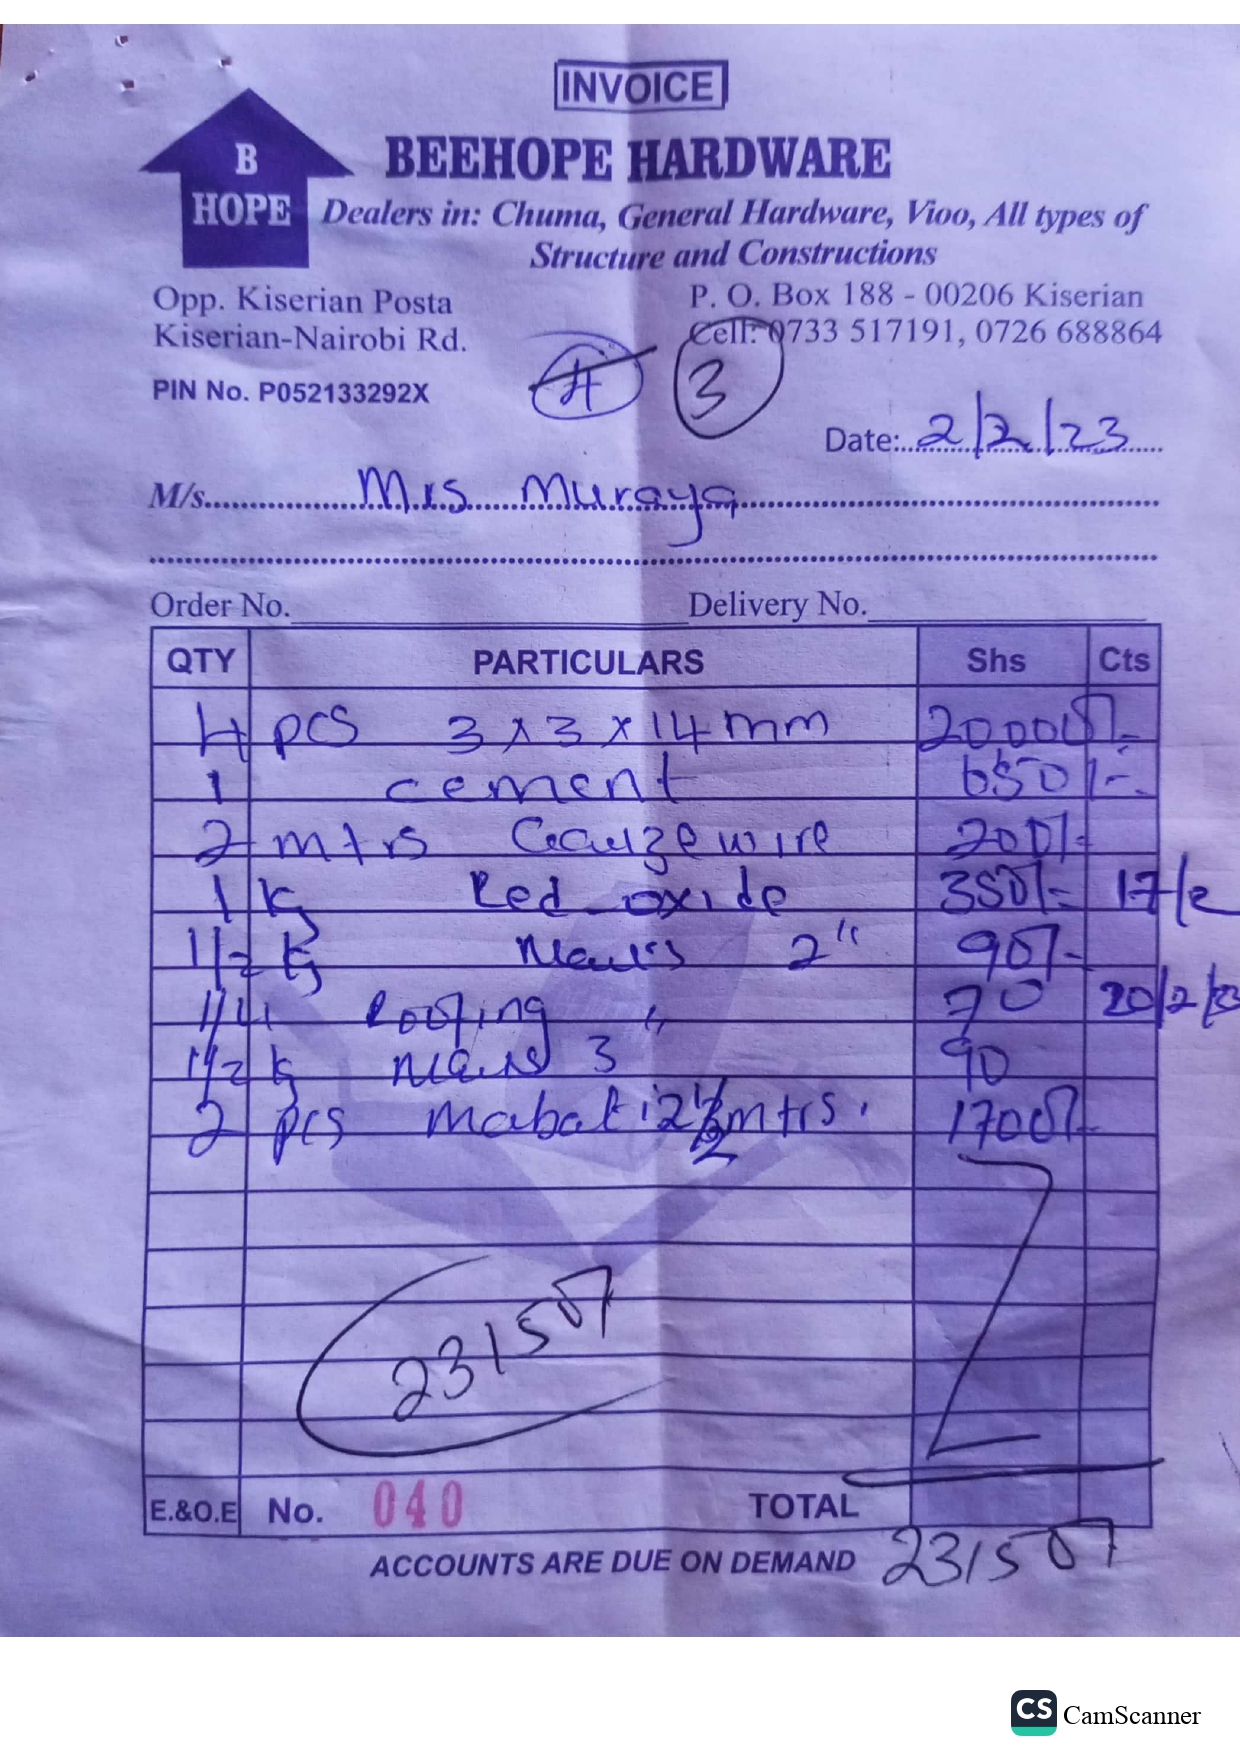 INVOICE
B
HOPE
BEEHOPE HARDWARE
Dealers in: Chuma, General Hardware, Vioo, All types of
Structure and Constructions
Opp. Kiserian Posta
Kiserian-Nairobi Rd.
P. O. Box 188 - 00206 Kiserian
Cell: 0733 517191, 0726 688864
PIN No. P052133292X
4 3
Date: 2/2/23
M/s. Mrs Muraya
Order No. Delivery No.
QTY PARTICULARS Shs Cts
4 pcs 3 x 3 x 14 mm 20000/-
1 cement 650/-
2 mtrs Gauze wire 200/-
1 kg Red oxide 350/- 17/2
1/2 kg Nails 2" 90/-
1/4 Roofing " 70 20/2/23
1/2 kg Nails 3 90
2 pcs mabati 2 1/2 mtrs. 1700/-
23150/
E.&O.E No. 040 TOTAL
ACCOUNTS ARE DUE ON DEMAND 23150/
CS CamScanner